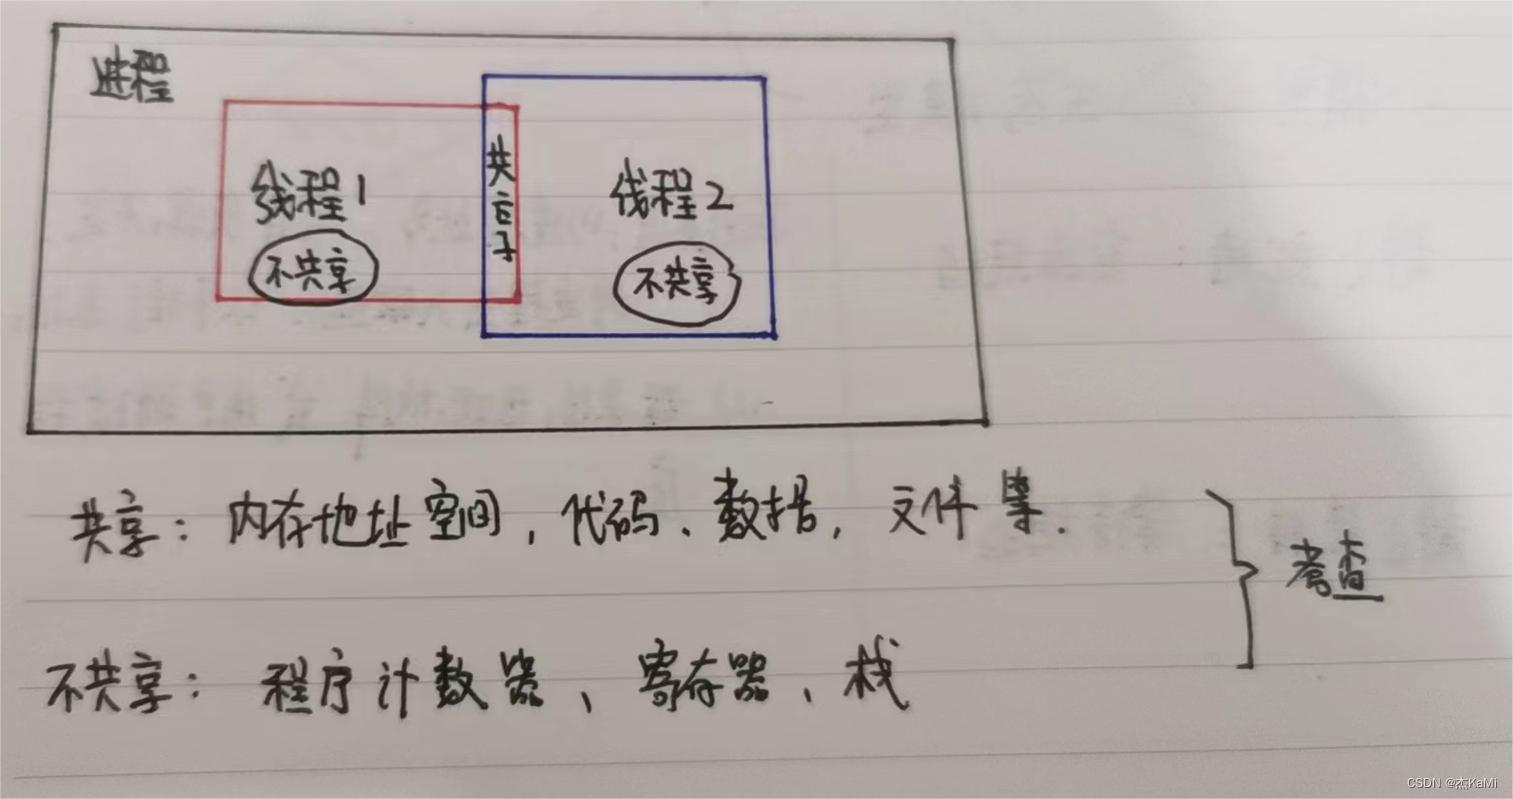 进程
线程1
共享
线程2
不共享
不共享
共享：内存地址空间，代码、数据，文件等．
考查
不共享：程序计数器、寄存器、栈
CSDN @杰KaMi